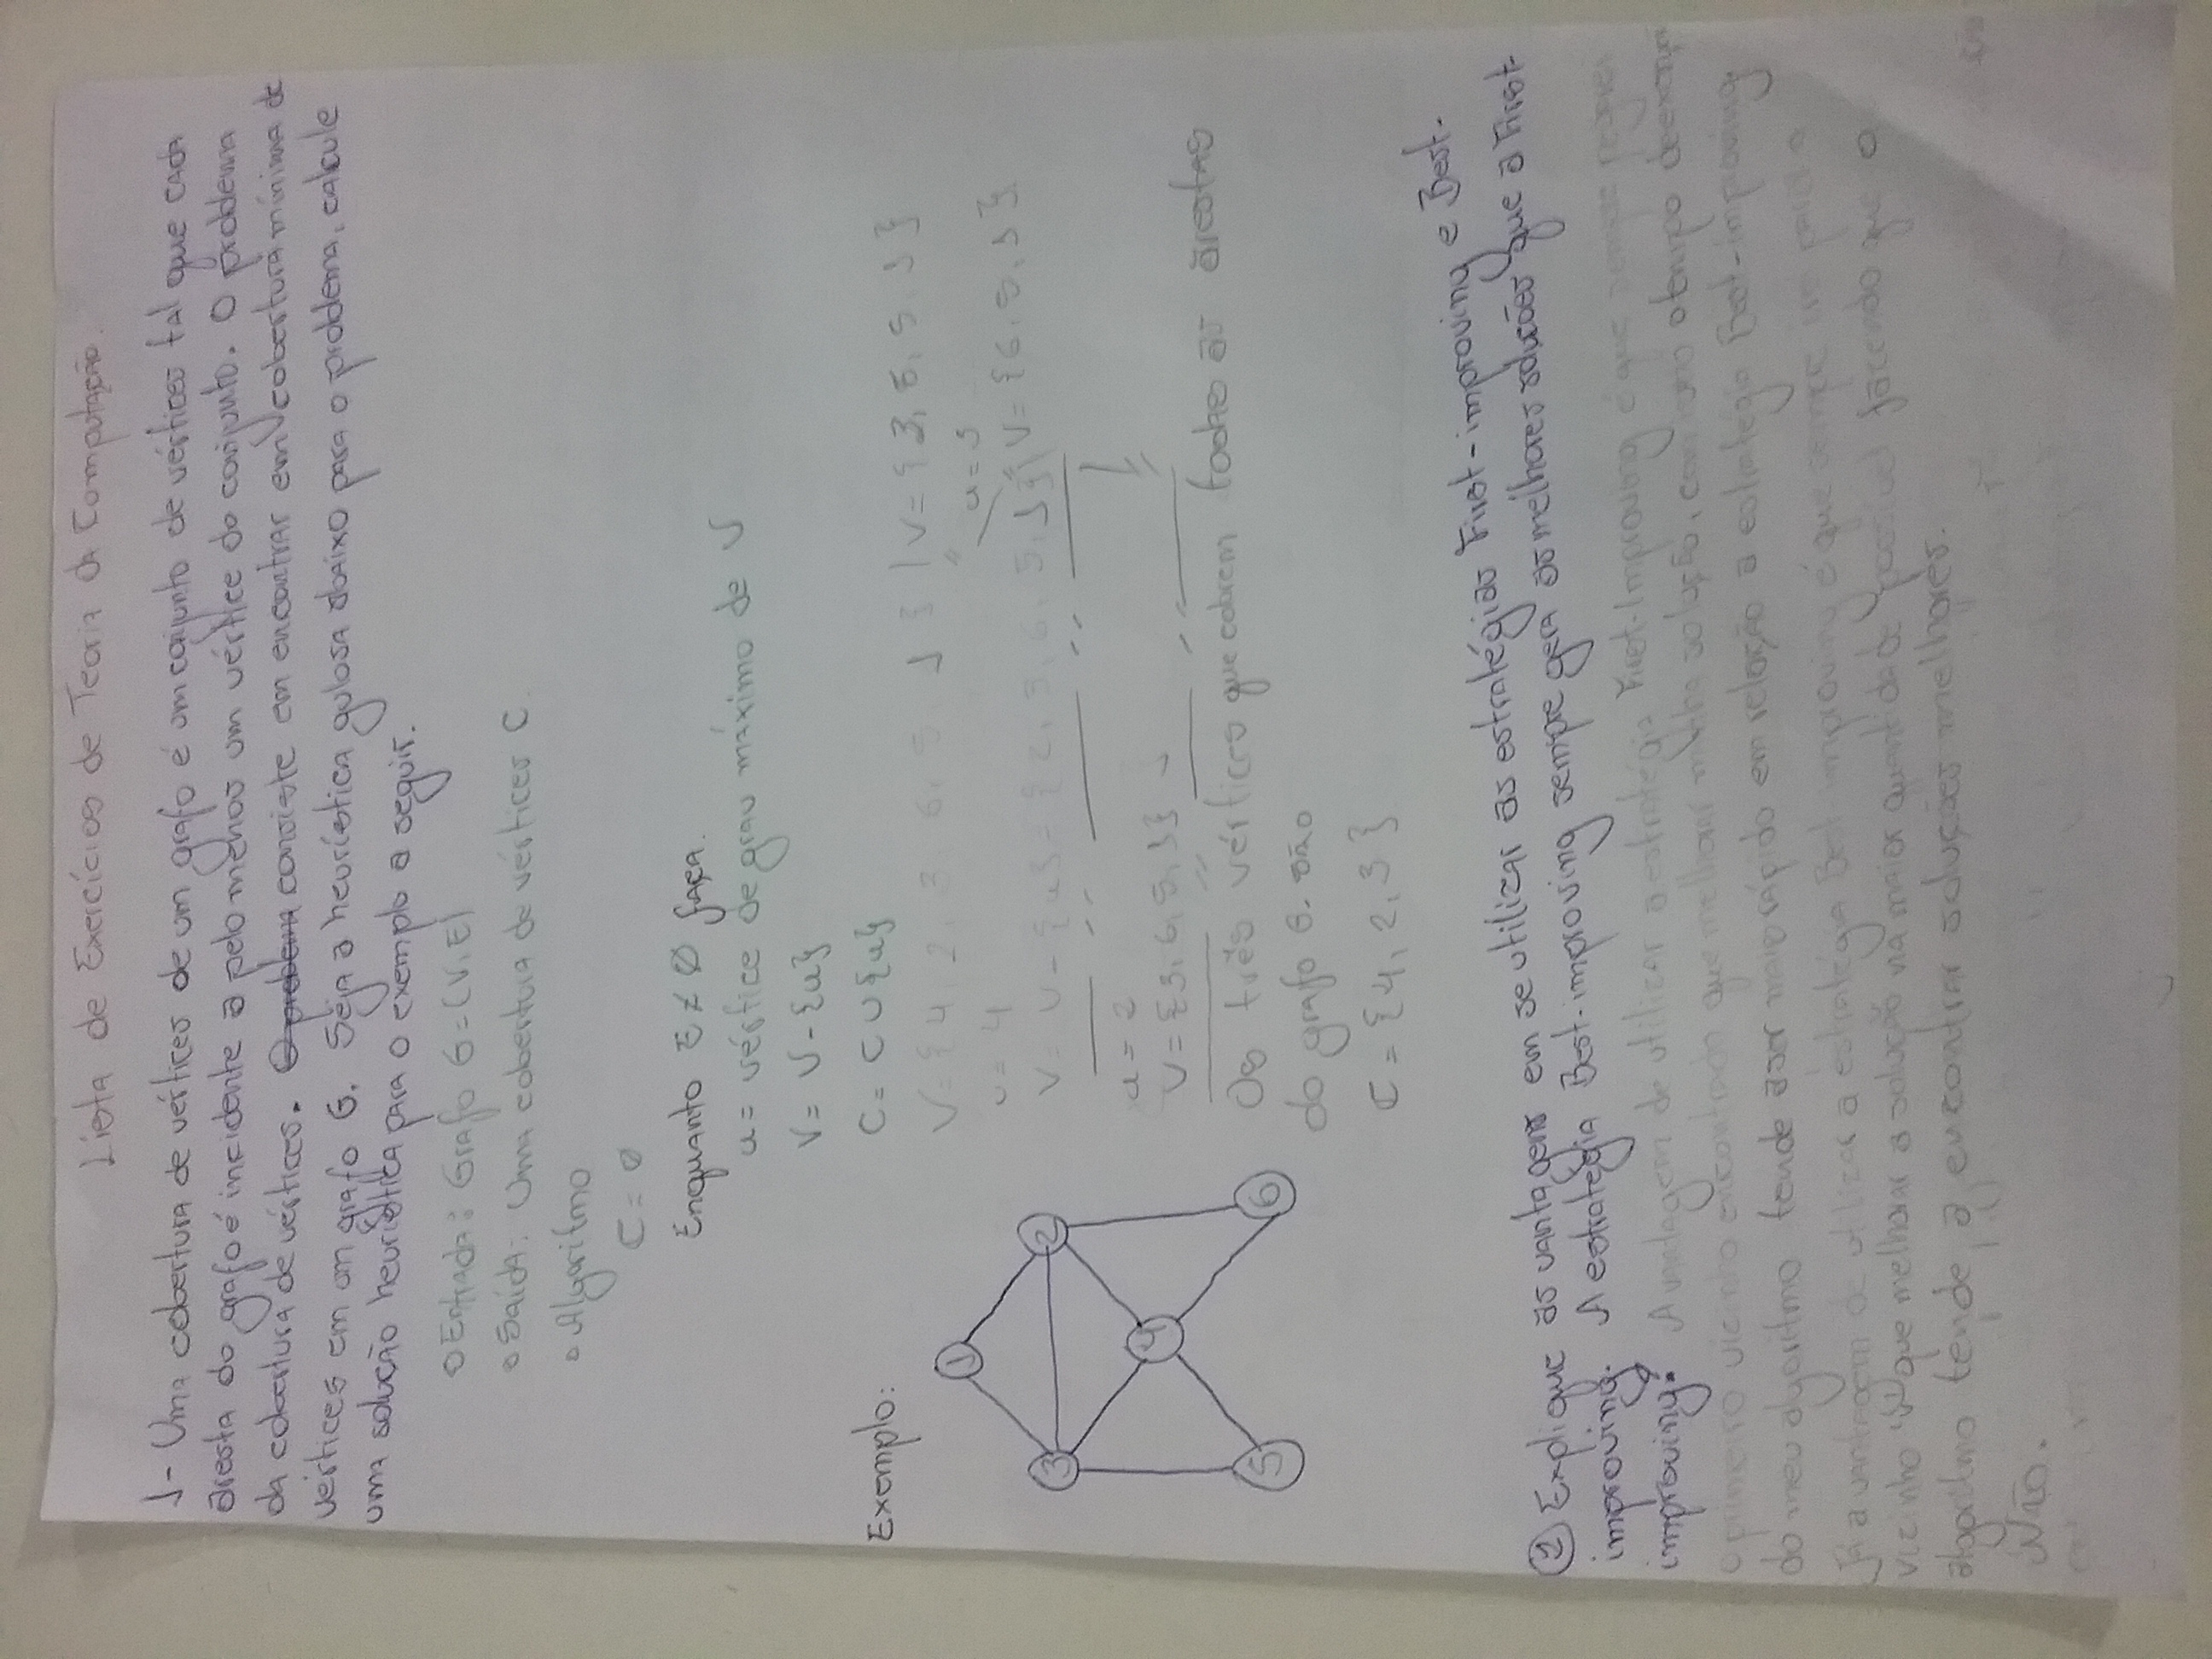 Lista de Exercícios de Teoria da Computação.
1- Uma cobertura de vértices de um grafo é um conjunto de vértices tal que cada
aresta do grafo é incidente a pelo menos um vértice do conjunto. O problema
da cobertura de vértices. O problema consiste em encontrar em cobertura mínima de
vértices em um grafo G. Seja a heurística gulosa abaixo para o problema, calcule
uma solução heurística para o exemplo a seguir.
Entrada: Grafo G=(V,E)
Saída: Uma cobertura de vértices C.
Algoritmo
C = ∅
Enquanto E ≠ ∅ faça.
u = vértice de grau máximo de V
V = V - {u}
C = C ∪ {u}
Exemplo:
V = {4, 2, 3, 6, 5, 1} | V = {3, 6, 5, 1}
u = 4
u = 3
V = V - {u} = {2, 3, 6, 5, 1} | V = {6, 5, 1}
u = 2
V = {3, 6, 5, 1}
Os três vértices que cobrem todas as arestas
do grafo G. são
C = {4, 2, 3}
1
3 2
4
5 6
2 Explique as vantagens em se utilizar as estratégias First-improving e Best-
improving. A estratégia Best-improving sempre gera as melhores soluções que a First-
improving? A vantagem de utilizar a estratégia First-Improving é que sempre
o primeiro vizinho encontrado que melhorar minha solução, com isso o tempo de
do meu algoritmo tende a ser mais rápido em relação a estratégia Best-improving
Já a vantagem de utilizar a estratégia Best improving é que sempre para o
vizinho que melhorar a solução na maior quantidade possível facendo que o
algoritmo tende a encontrar soluções melhores.
Não.